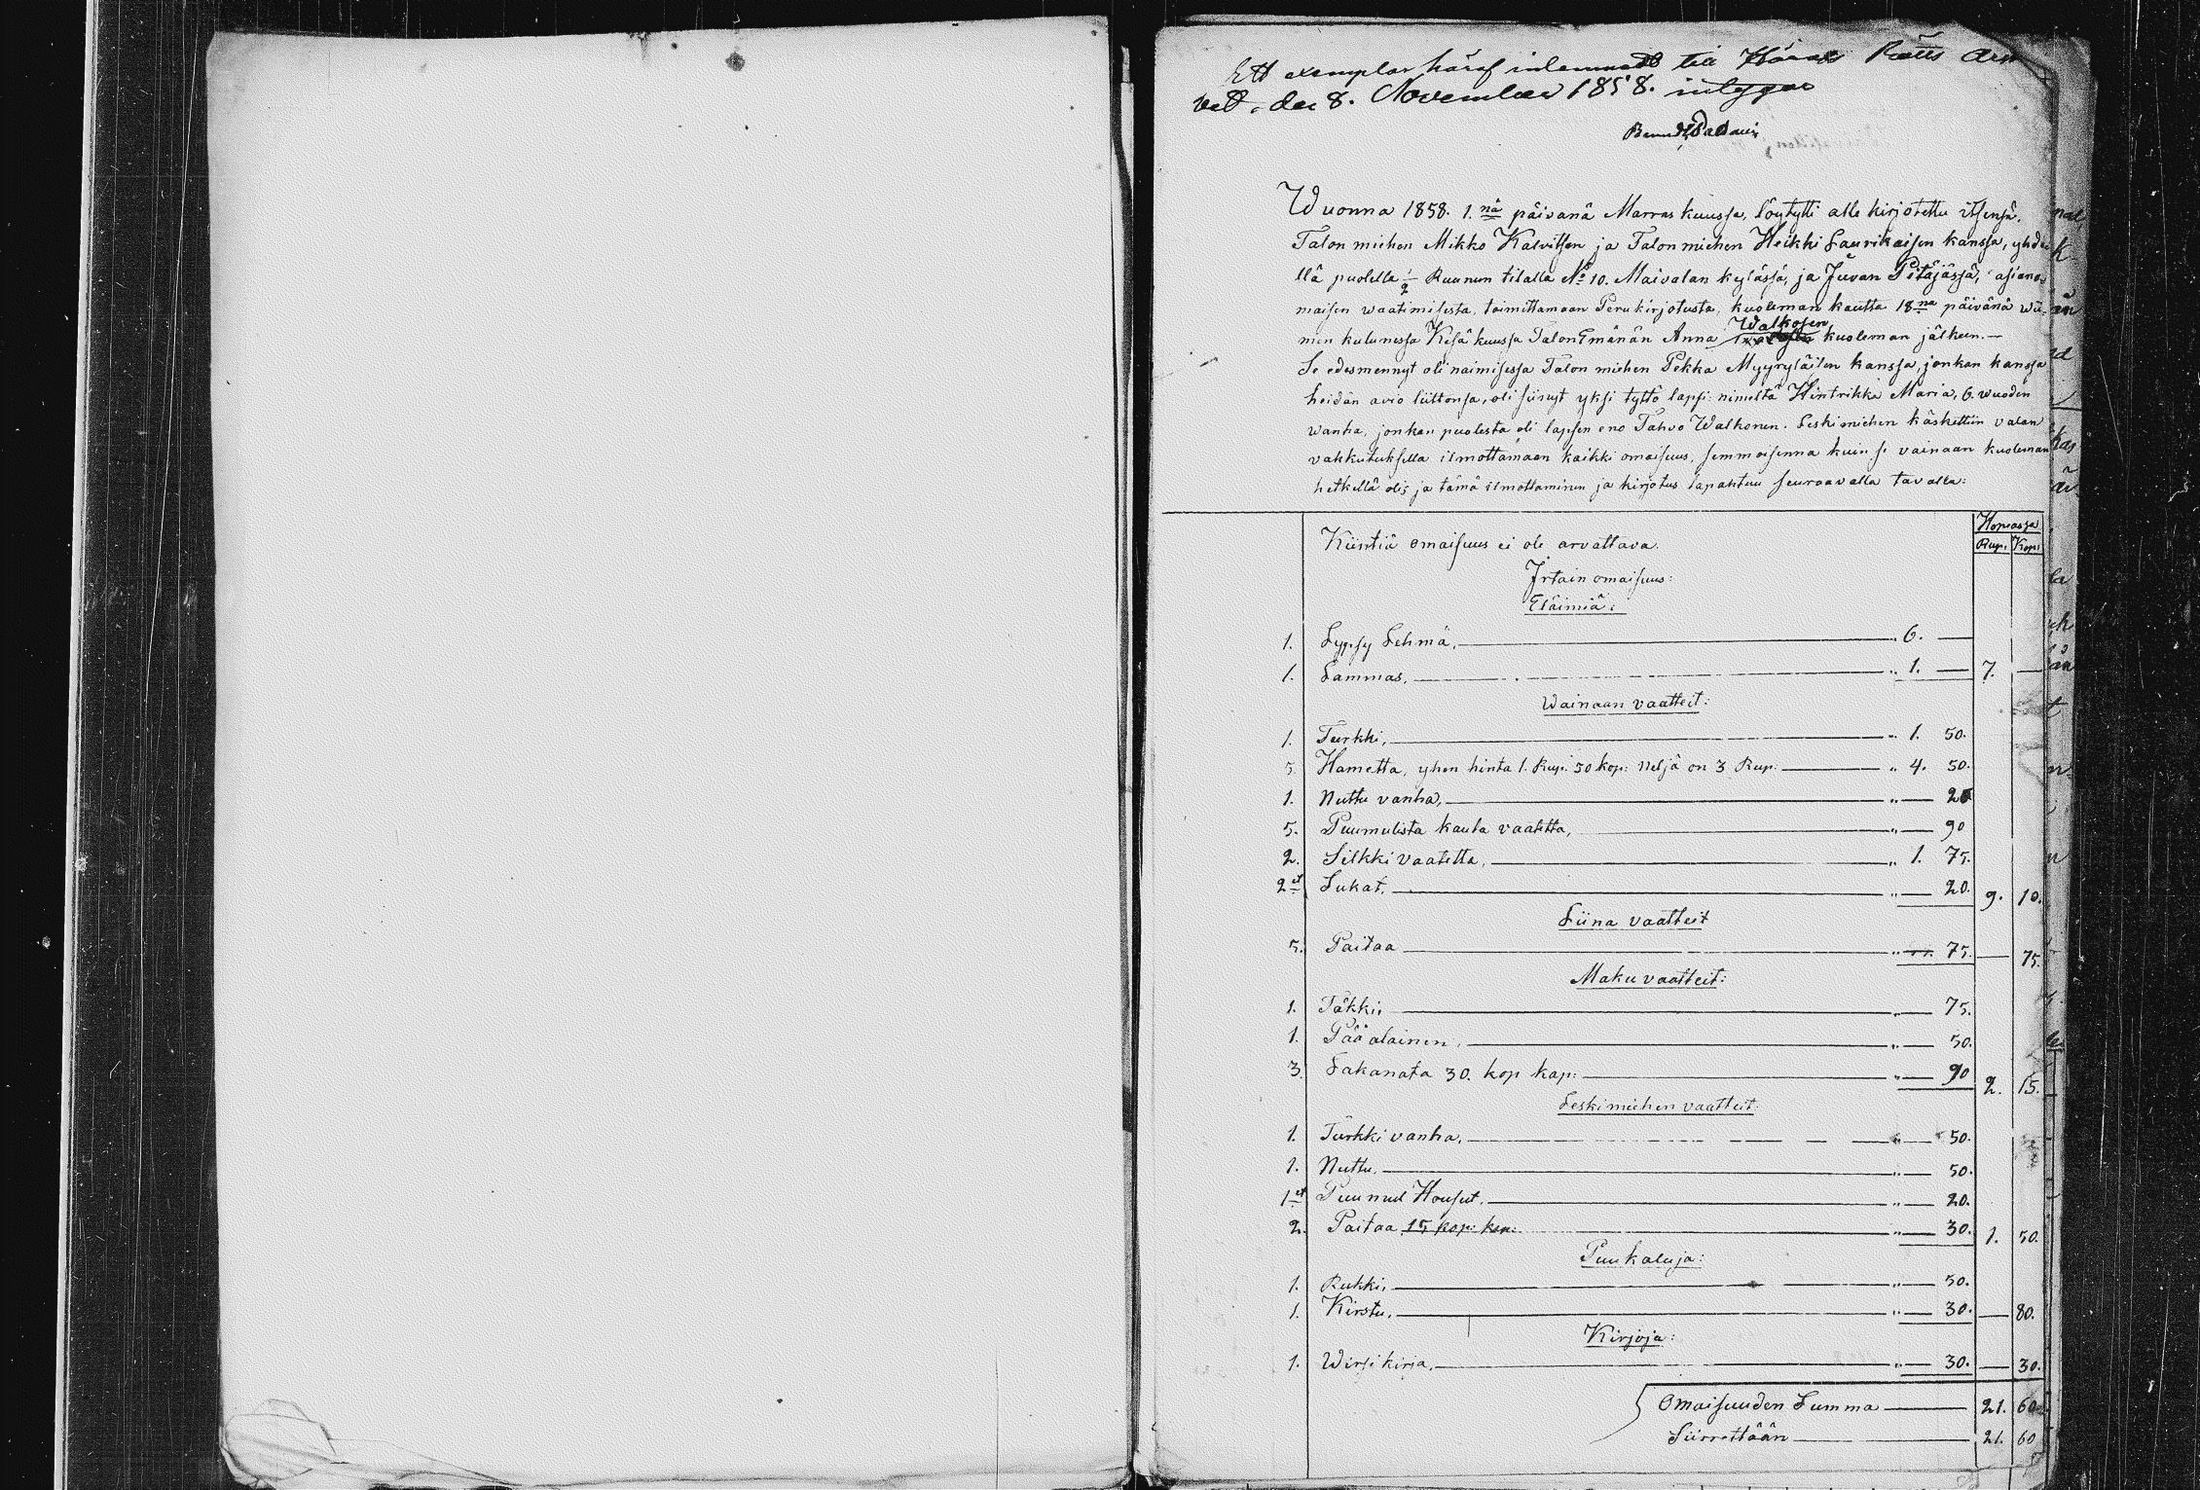 Ett exemplar häraf inlemnadt till Härads Rätts Arki
vet, den 8. November 1858. intygar
Wuonna 1858. 1.nä päivänä Marraskuussa, löytytti alle kirjotettu itsensä,
Talon miehen Mikko Kalvitsen ja Talon miehen Heikki Laurikaisen kanssa, yhde
llä puolella 1/2 Ruunun tilalla No 10. Maivalan kylässä, ja Juvan Pitäjässä, asiano-
maisen waatimisesta, toimittamaan Perukirjotusta, kuoleman kautta 18na päivänä wii-
men kulunessa Kesäkuussa Talon Emänän Anna Walkosen kuoleman jälkeen.—
Se edesmennyt oli naimisessa Talon miehen Pekka Myyryläisen kanssa, jonkan kanssa
heidän avio liittonsa, oli siinyt yksi tyttö lapsi: nimeltä Hintrikka Maria, 6. wuoden
wanha, jonkan puolesta oli lapsen eno Tahvo Walkonen. Leskimiehen käskettiin valan
vakkutuksella ilmottamaan kaikki omaisuus, semmoisenna kuin se vainaan kuoleman
hetkellä olis ja tämä ilmottaminen ja kirjotus tapahtuu seuraavalla tavalla:
Hopiassa
Kiintiä omaisuus ei ole arvattava. Rup: Kop:
Irtain omaisuus:
Eläimiä:
1. Lypsy Lehmä, „ 6. —
1. Lammas, „ 1. — 7. —
Wainaan vaatteit:
1. Turkki, „ 1. 50.
5 Hametta, yhen hinta 1. Rup: 50 kop: neljä on 3 Rup: „ 4. 50.
1. Nuttu vanha, „ — 20
5. Puumulista kaula vaatetta, „ — 90
2. Silkki vaatetta, „ 1. 75.
2et Sukat, „ — 20. 9. 10.
Liina vaatteit
5. Paitaa „ — 75. — 75.
Maku vaatteit:
1. Täkki „ — 75.
1. Pääalainen, „ — 50.
3. Lakanata 30. kop kap: „ — 90 2. 15.
Leskimiehen vaatteit:
1. Turkki vanha, „ — 50.
1. Nuttu, „ — 50.
1et Puumul Housut, „ — 20.
2. Paitaa 15 kop: kap: „ — 30. 1. 50.
Puukaluja:
1. Rukki, „ — 50.
1. Kirstu, „ — 30. — 80.
Kirjoja:
1. Wirsikirja, „ — 30. — 30.
Omaisuuden Summa — 21. 60
Siirrettään — 21. 60